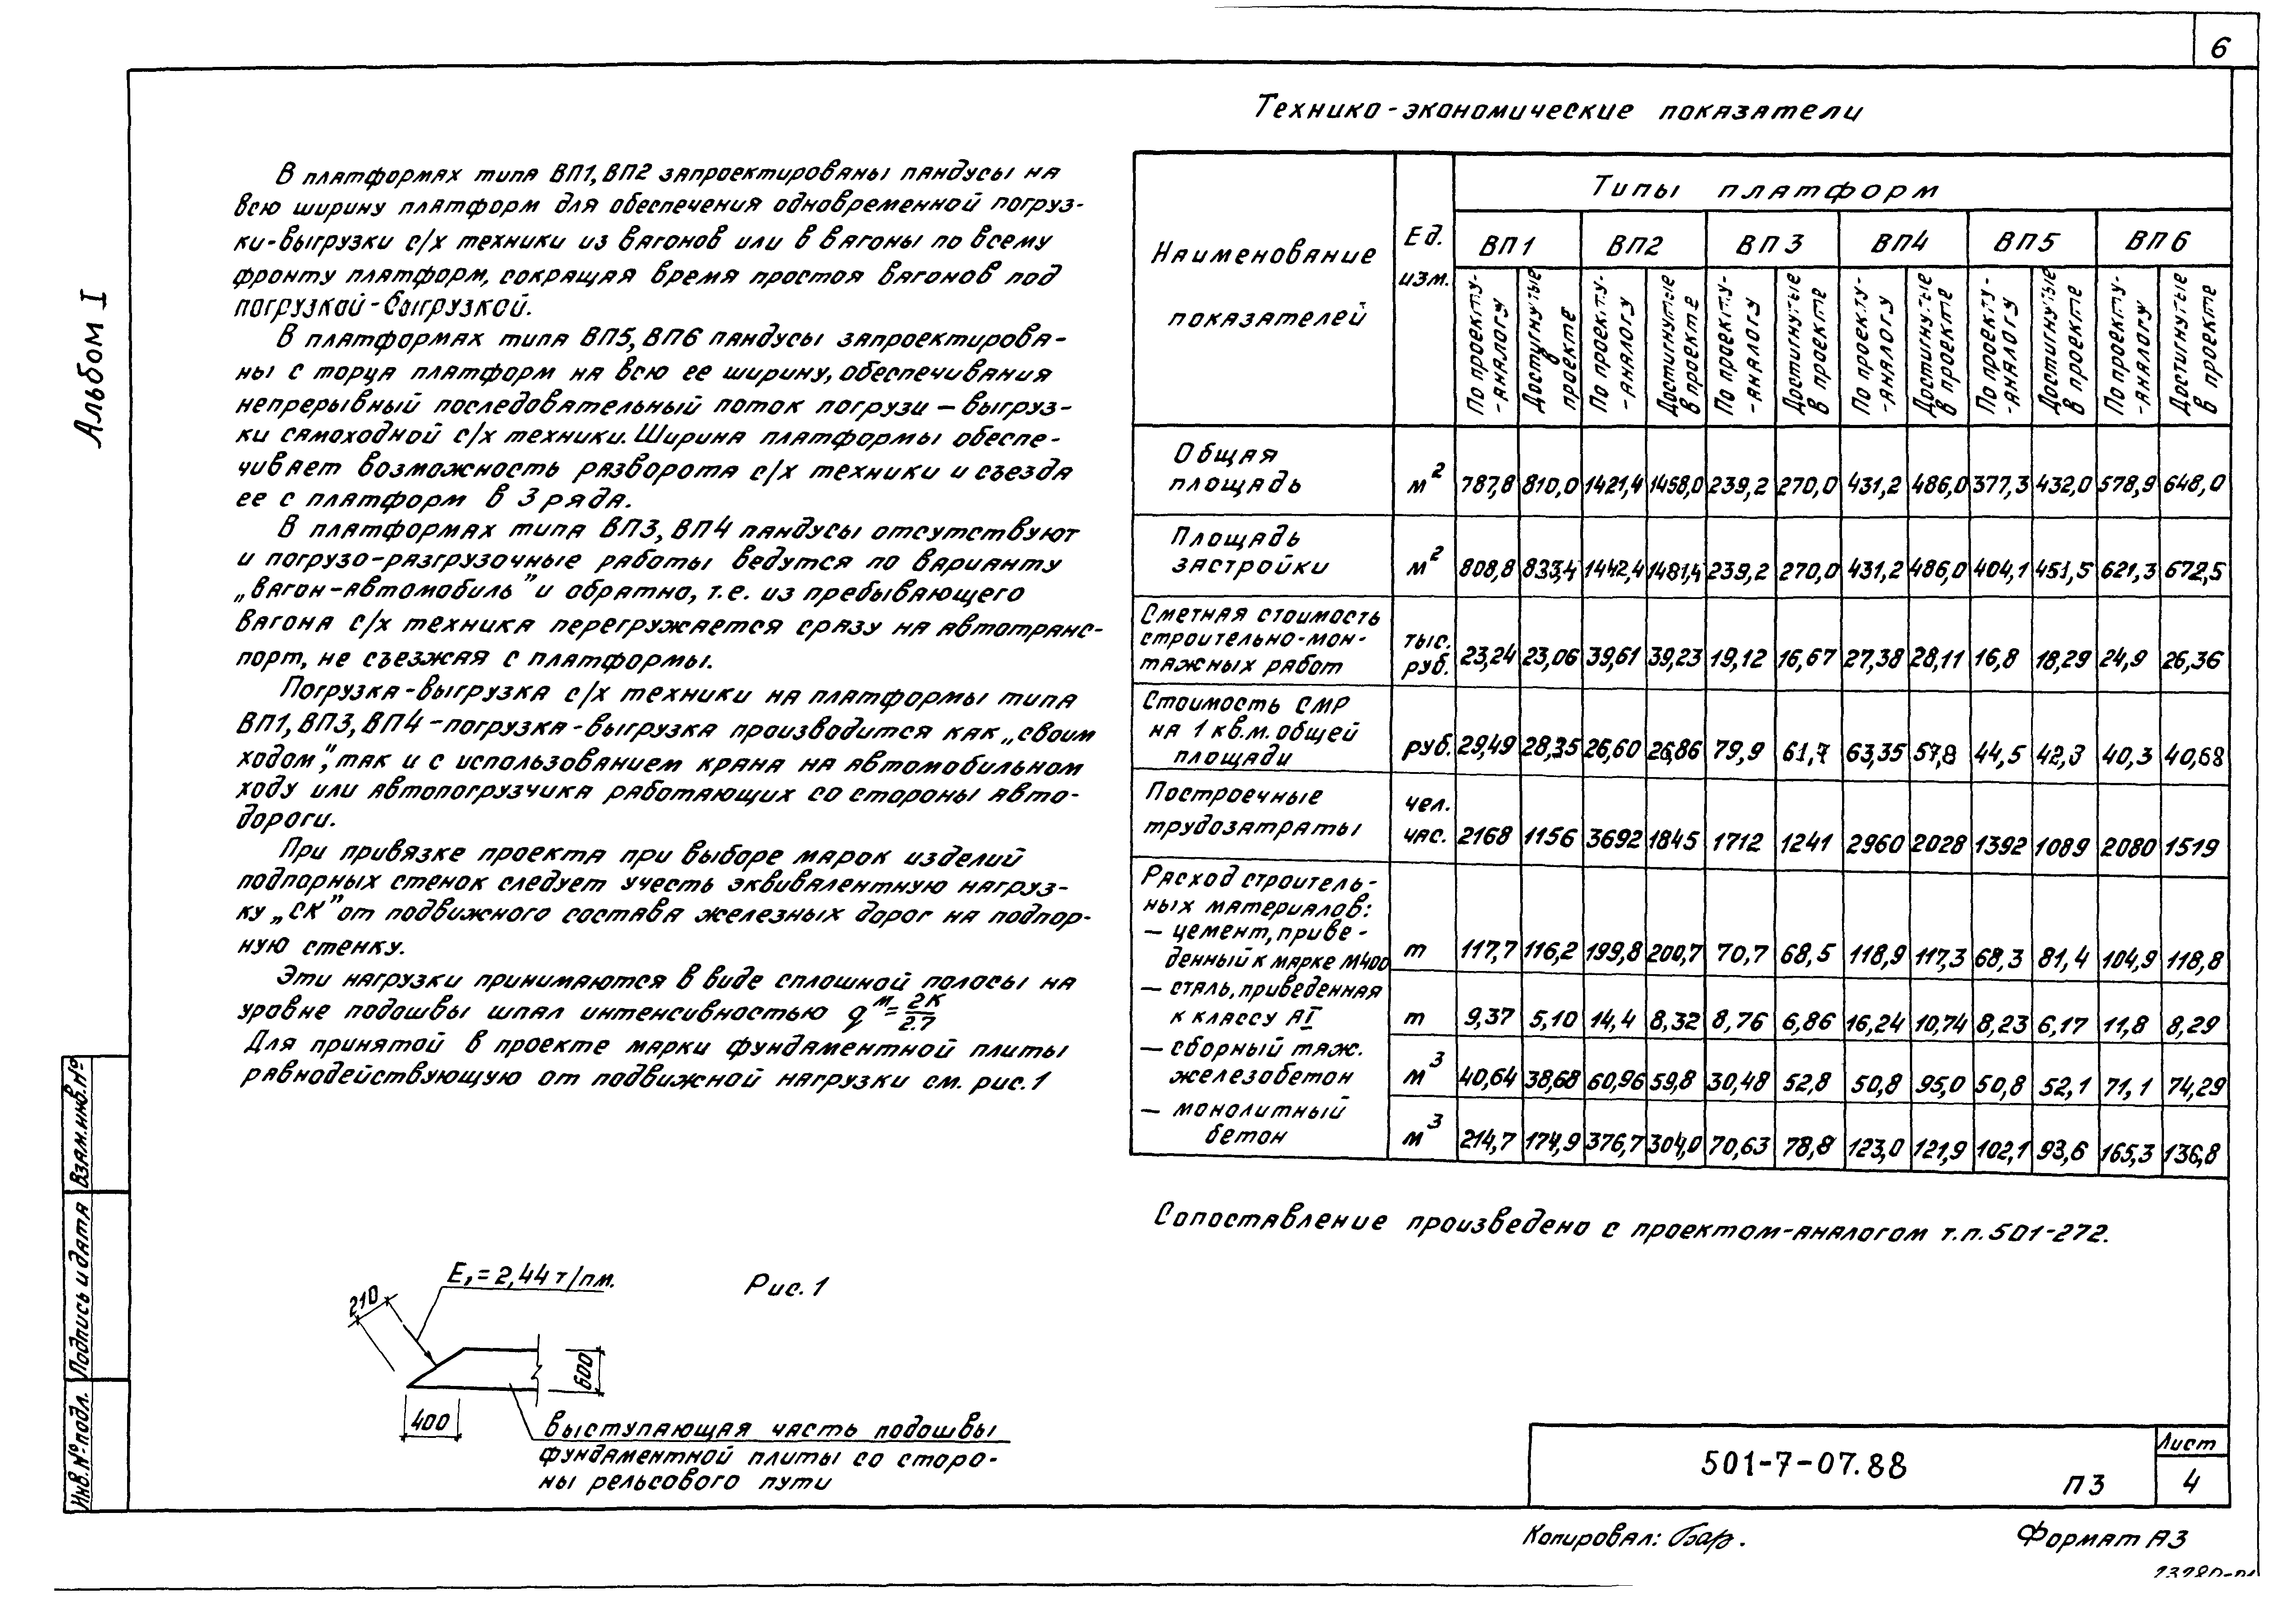 6
Альбом I
В платформах типа ВП1, ВП2 запроектированы пандусы на
всю ширину платформ для обеспечения одновременной погруз-
ки-выгрузки с/х техники из вагонов или в вагоны по всему
фронту платформ, сокращая время простоя вагонов под
погрузкой-выгрузкой.
В платформах типа ВП5, ВП6 пандусы запроектирова-
ны с торца платформ на всю ее ширину, обеспечивания
непрерывный последовательный поток погрузи – выгруз-
ки самоходной с/х техники. Ширина платформы обеспе-
чивает возможность разворота с/х техники и съезда
ее с платформ в 3 ряда.
В платформах типа ВП3, ВП4 пандусы отсутствуют
и погрузо-разгрузочные работы ведутся по варианту
„вагон-автомобиль" и обратно, т.е. из пребывающего
вагона с/х техника перегружается сразу на автотранс-
порт, не съезжая с платформы.
Погрузка-выгрузка с/х техники на платформы типа
ВП1, ВП3, ВП4 – погрузка-выгрузка производится как „своим
ходом", так и с использованием крана на автомобильном
ходу или автопогрузчика работающих со стороны авто-
дороги.
При привязке проекта при выборе марок изделий
подпорных стенок следует учесть эквивалентную нагруз-
ку „СК" от подвижного состава железных дорог на подпор-
ную стенку.
Эти нагрузки принимаются в виде сплошной полосы на
уровне подошвы шпал интенсивностью q^м = 2К/2.7
Для принятой в проекте марки фундаментной плиты
равнодействующую от подвижной нагрузки см. рис. 1
E₁ = 2,44 т/пм.
Рис. 1
210
600
400
Выступающая часть подошвы
фундаментной плиты со сторо-
ны рельсового пути
Технико-экономические показатели
Наименование показателей | Ед. изм. | Типы платформ
ВП1 | ВП2 | ВП3 | ВП4 | ВП5 | ВП6
По проекту-аналогу | Достугнутые в проекте | По проекту-аналогу | Достигнутые в проекте | По проекту-аналогу | Достигнутые в проекте | По проекту-аналогу | Достигнутые в проекте | По проекту-аналогу | Достигнутые в проекте | По проекту-аналогу | Достигнутые в проекте
Общая
площадь | м² | 787,8 | 810,0 | 1421,4 | 1458,0 | 239,2 | 270,0 | 431,2 | 486,0 | 377,3 | 432,0 | 578,9 | 648,0
Площадь
застройки | м² | 808,8 | 833,4 | 1442,4 | 1481,4 | 239,2 | 270,0 | 431,2 | 486,0 | 404,1 | 451,5 | 621,3 | 672,5
Сметная стоимость
строительно-мон-
тажных работ | тыс. руб. | 23,24 | 23,06 | 39,61 | 39,23 | 19,12 | 16,67 | 27,38 | 28,11 | 16,8 | 18,29 | 24,9 | 26,36
Стоимость СМР
на 1 кв.м. общей
площади | руб. | 29,49 | 28,35 | 26,60 | 26,86 | 79,9 | 61,7 | 63,35 | 57,8 | 44,5 | 42,3 | 40,3 | 40,68
Построечные
трудозатраты | чел. час. | 2168 | 1156 | 3692 | 1845 | 1712 | 1241 | 2960 | 2028 | 1392 | 1089 | 2080 | 1519
Расход строитель-
ных материалов:
– цемент, приве-
денный к марке М400 | т | 117,7 | 116,2 | 199,8 | 200,7 | 70,7 | 68,5 | 118,9 | 117,3 | 68,3 | 81,4 | 104,9 | 118,8
– сталь, приведенная
к классу АI | т | 9,37 | 5,10 | 14,4 | 8,32 | 8,76 | 6,86 | 16,24 | 10,74 | 8,23 | 6,17 | 11,8 | 8,29
– сборный тяж.
железобетон | м³ | 40,64 | 38,68 | 60,96 | 59,8 | 30,48 | 52,8 | 50,8 | 95,0 | 50,8 | 52,1 | 71,1 | 74,29
– монолитный
бетон | м³ | 214,7 | 174,9 | 376,7 | 304,0 | 70,63 | 78,8 | 123,0 | 121,9 | 102,1 | 93,6 | 165,3 | 136,8
Сопоставление произведено с проектом-аналогом т.п. 501-272.
Взам. инв. №
Подпись и дата
Инв. № подл.
501-7-07.88
ПЗ
Лист
4
Копировал: Бар.
Формат А3